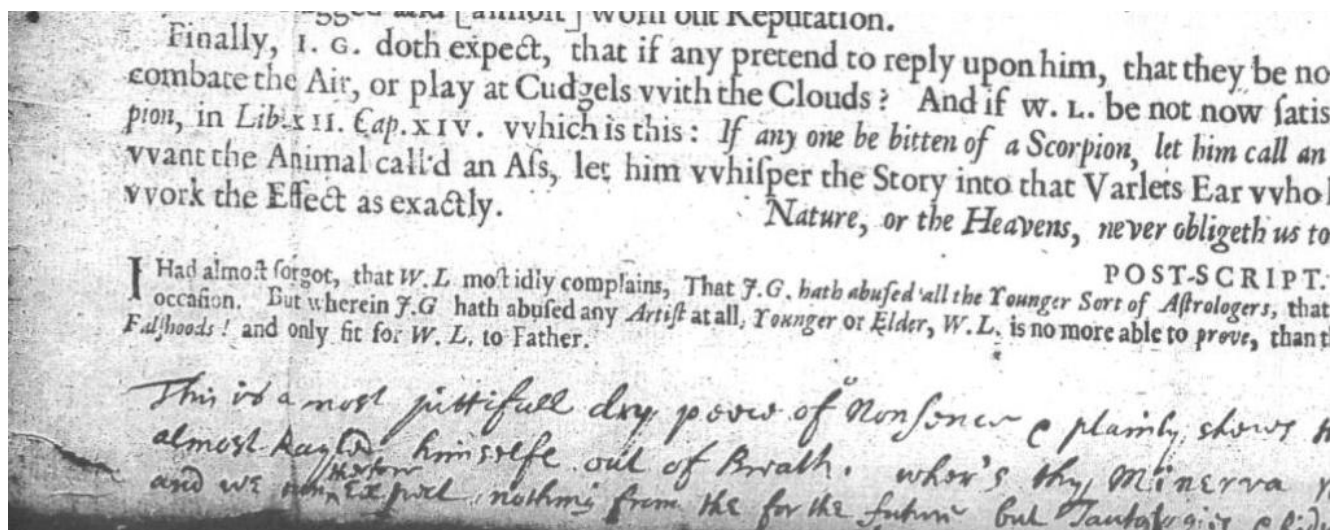 and [almost] worn out Reputation.
Finally, I. G. doth expect, that if any pretend to reply upon him, that they be no
combate the Air, or play at Cudgels vvith the Clouds? And if W. L. be not now ſatis
pion, in Lib. XII. Cap. XIV. vvhich is this: If any one be bitten of a Scorpion, let him call an
vvant the Animal call'd an Aſs, let him vvhiſper the Story into that Varlets Ear vvho
vvork the Effect as exactly. Nature, or the Heavens, never obligeth us to
POST-SCRIPT.
I Had almoſt forgot, that W. L moſt idly complains, That J.G. hath abuſed all the Younger Sort of Aſtrologers, that
occaſion. But wherein J.G hath abuſed any Artiſt at all, Younger or Elder, W. L. is no more able to prove, than
Falſhoods! and only fit for W. L. to Father.
This is a most pittifull dry of Nonſence & plainly shows
almost himselfe out of Breath. wher's thy Minerva
and we Expect nothing from the for the future but